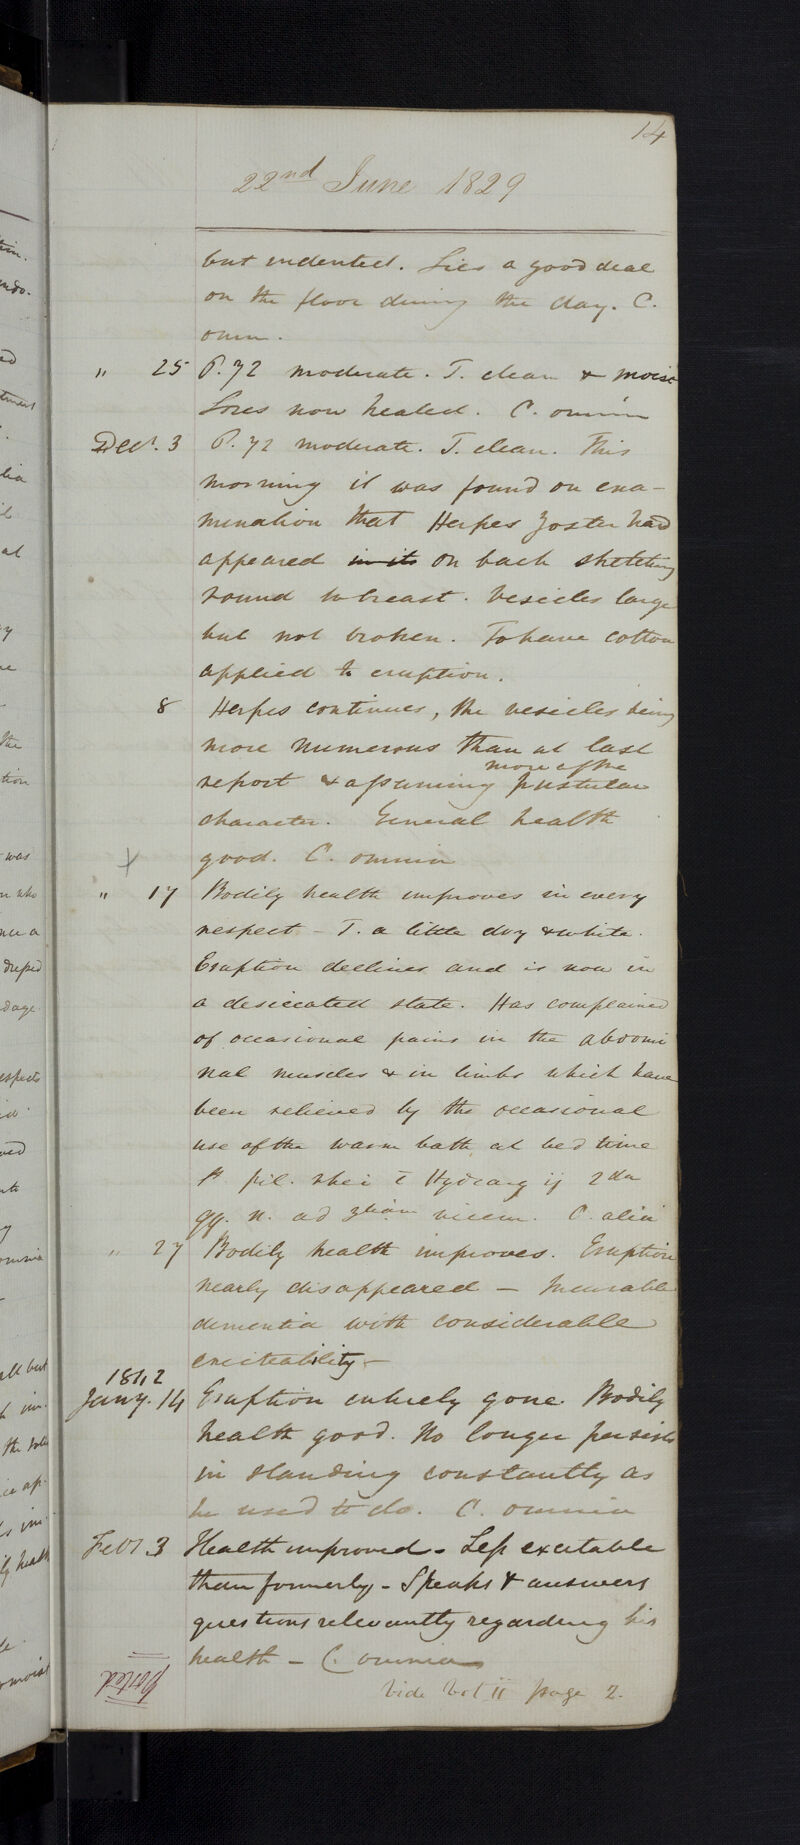 14
22nd June 1829
but indented. Lies a good deal
on the floor during the day. C.
omn.
" 25 P. 72 moderate. T. clean & moist
Sores now healed. C. omnia
Decr. 3 P. 72 moderate. T. clean. This
morning it was found on exa-
mination that Herpes Zoster had
appeared in its on back stretching
round to breast. Vesicles large
but not broken. To have cotton
applied to eruption.
8 Herpes continues, the vesicles being
more numerous than at last
more of the
report & assuming pustular
character. General health
good. C. omnia
" 17 Bodily health improves in every
respect - T. a little dry & white.
Eruption declines and is now in
a desiccated state. Has complained
of occasional pains in the abdomi
nal muscles & in limbs which have
been relieved by the occasional
use of the warm bath at bed time
pil. rhei c Hydrarg ij 2da
qq. n. ad vicem. C. alia
" 27 Bodily health improves. Eruption
nearly disappeared - Incurable
dementia with considerable
excitability -
1842
Jany. 14 Eruption entirely gone Bodily
health good. No longer persists
in standing constantly as
he used to do. C. omnia
Feb 3 Health improved - Less excitable
than formerly - Speaks & answers
questions relevantly regarding his
health - C. omnia
Vide Vol II page 2.
Posted